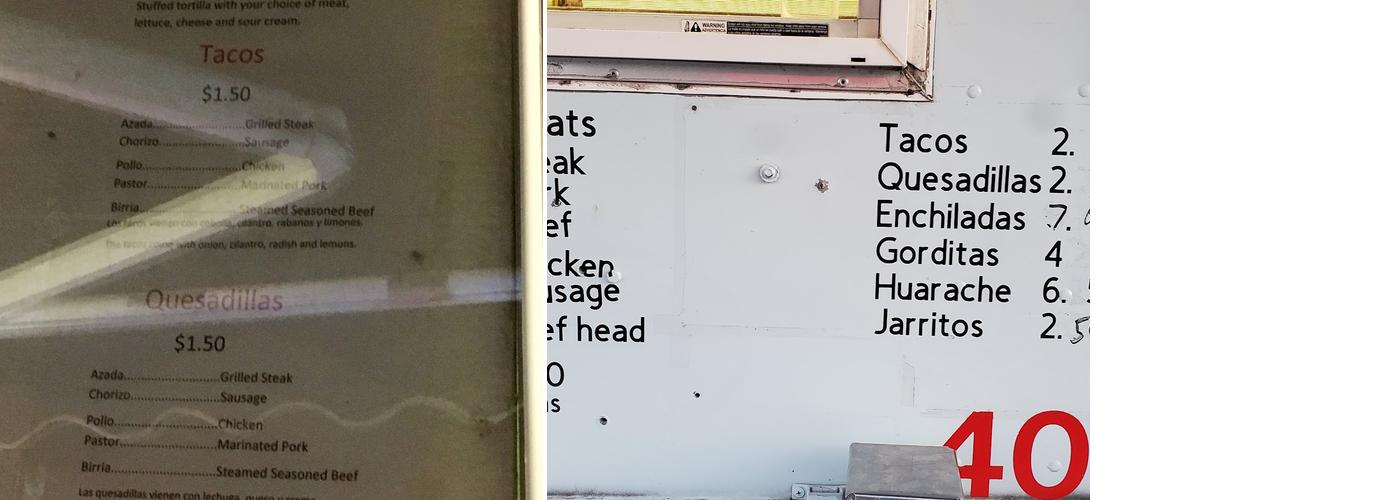 Stuffed tortilla with your choice of meat,
lettuce, cheese and sour cream.
Tacos
$1.50
Azada..............................Grilled Steak
Chorizo............................Sausage
Pollo................................Chicken
Pastor.............................Marinated Pork
Birria...............................Steamed Seasoned Beef
Los tacos vienen con cebolla, cilantro, rabanos y limones.
The tacos come with onion, cilantro, radish and lemons.
Quesadillas
$1.50
Azada..............................Grilled Steak
Chorizo............................Sausage
Pollo................................Chicken
Pastor.............................Marinated Pork
Birria...............................Steamed Seasoned Beef
Las quesadillas vienen con lechuga, queso y crema
WARNING
ADVERTENCIA
ats
eak
rk
ef
cken
usage
ef head
0
ns
Tacos 2.
Quesadillas 2.
Enchiladas 7.
Gorditas 4
Huarache 6.
Jarritos 2.5
40